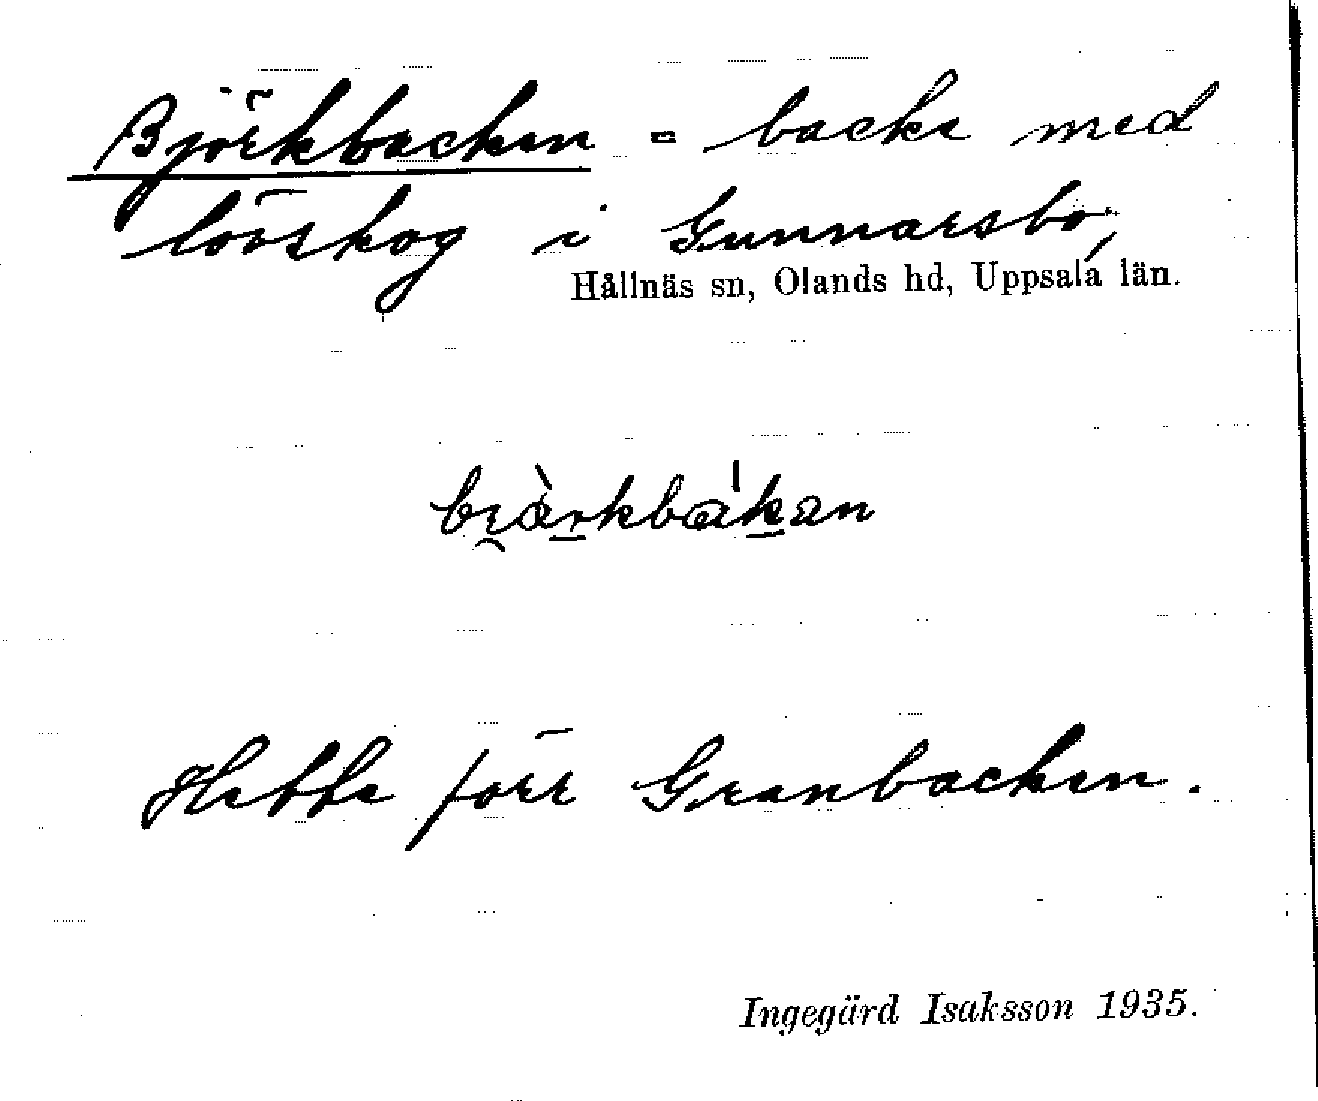 Björkbacken = backe med
lövskog i Gunnarsbo,
Hållnäs sn, Olands hd, Uppsala län.
Hette förr Granbacken.
Ingegärd Isaksson 1935.